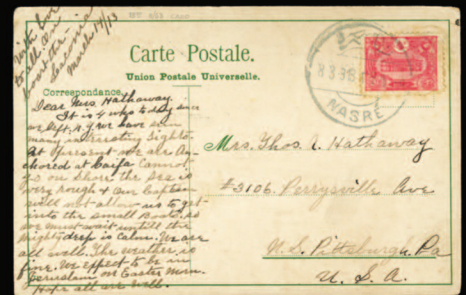 With love
to all on
board the
Laconia
March 14/13
Carte Postale.
Union Postale Universelle.
Correspondance.
Dear Mrs. Hathaway.
It is 4 wks to day since
we left N.Y. We have seen
many interesting sights
At present we are An-
chored at Caifa Cannot
go on Shore the sea is
very rough & our Captain
will not allow us to get
into the small Boats, so
we must wait untill the
mighty deep is Calm. We are
all well. The weather is
fine. We expect to be in
Jerusalem on Easter Morn.
Hope all are well.
NASRE
Mrs. Thos. A. Hathaway
#3106. Perrysville Ave
N. S. Pittsburgh, Pa
U. S. A.